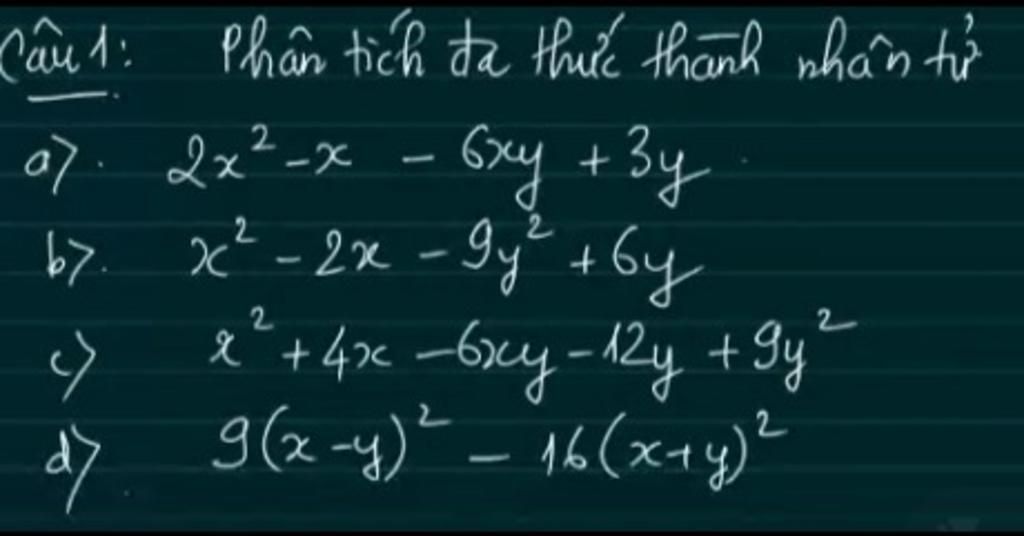 Câu 1: Phân tích đa thức thành nhân tử
a). 2x² - x - 6xy + 3y
b). x² - 2x - 9y² + 6y
c) x² + 4x - 6xy - 12y + 9y²
d) 9(x - y)² - 16(x + y)²